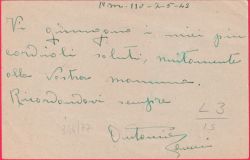 P.M. 110 - 2-5-43
Vi giungano i miei più
cordiali saluti, unitamente
alla vostra mamma.
Ricordandovi sempre
Antonio
L 3
15